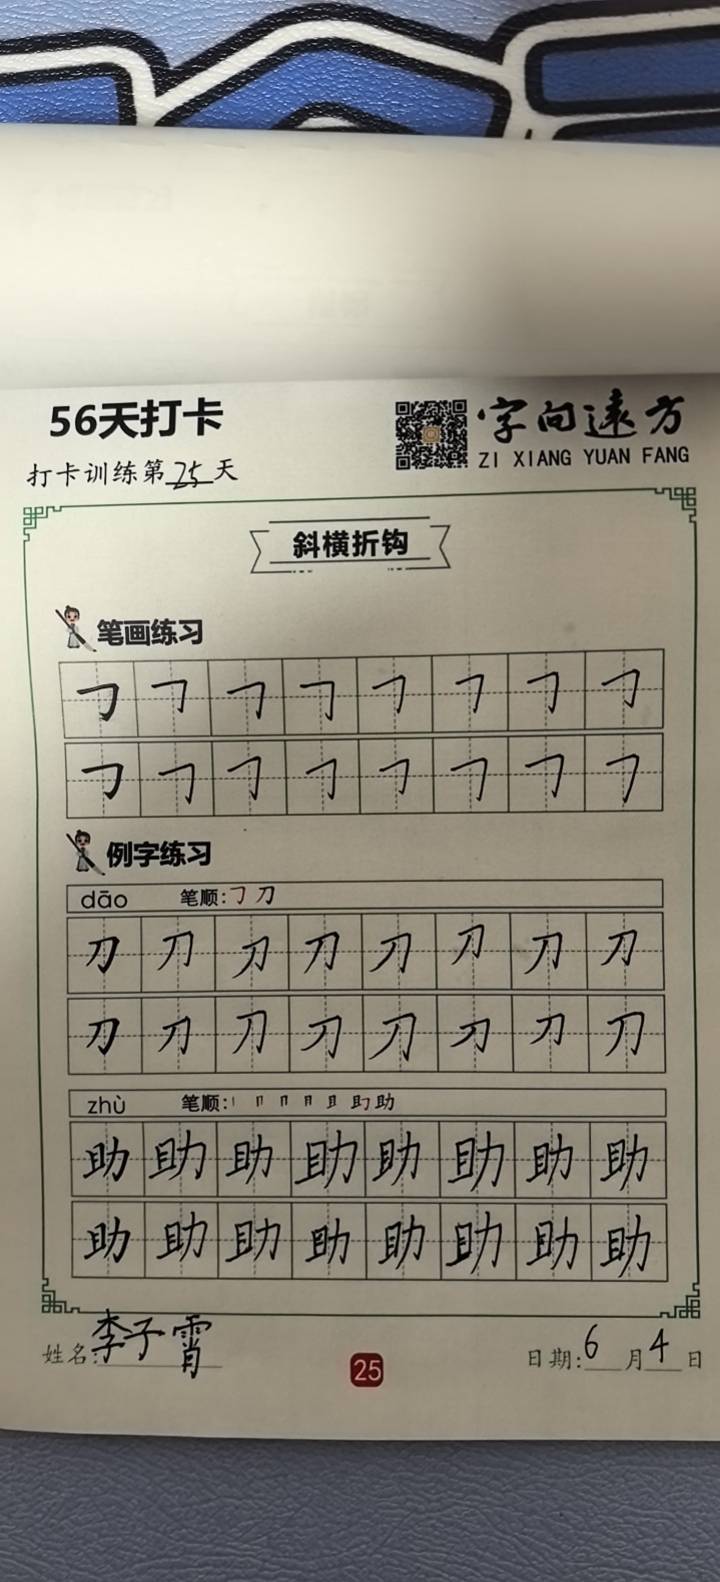 56天打卡
字向遠方
ZI XIANG YUAN FANG
打卡训练第25天
斜横折钩
笔画练习
㇆㇆㇆㇆㇆㇆㇆㇆
㇆㇆㇆㇆㇆㇆㇆㇆
例字练习
dāo 笔顺:㇆刀
刀刀刀刀刀刀刀刀
刀刀刀刀刀刀刀刀
zhù 笔顺:丨 冂 冂 月 且 助
助助助助助助助助
助助助助助助助助
姓名:李子霄
25
日期:6月4日